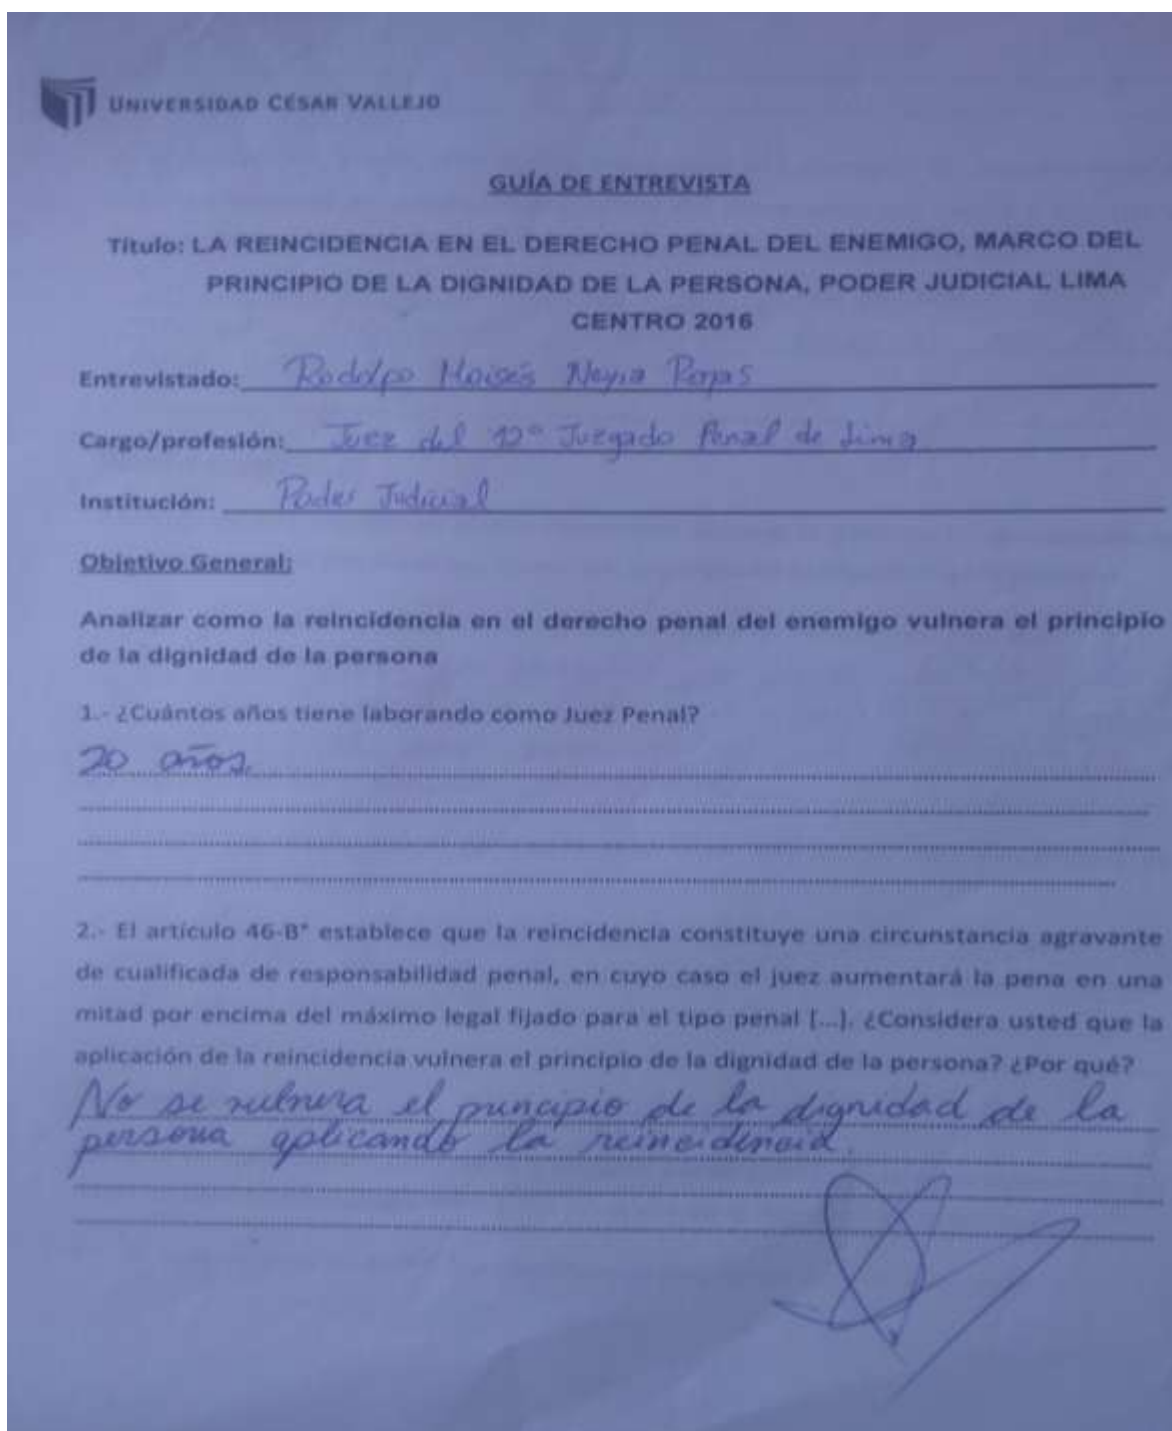 UNIVERSIDAD CÉSAR VALLEJO
GUÍA DE ENTREVISTA
Título: LA REINCIDENCIA EN EL DERECHO PENAL DEL ENEMIGO, MARCO DEL
PRINCIPIO DE LA DIGNIDAD DE LA PERSONA, PODER JUDICIAL LIMA
CENTRO 2016
Entrevistado: Rodolfo Moisés Neyra Rojas
Cargo/profesión: Juez del 12° Juzgado Penal de Lima
Institución: Poder Judicial
Objetivo General:
Analizar como la reincidencia en el derecho penal del enemigo vulnera el principio
de la dignidad de la persona
1.- ¿Cuántos años tiene laborando como Juez Penal?
20 años.
2.- El artículo 46-B° establece que la reincidencia constituye una circunstancia agravante
de cualificada de responsabilidad penal, en cuyo caso el juez aumentará la pena en una
mitad por encima del máximo legal fijado para el tipo penal [...]. ¿Considera usted que la
aplicación de la reincidencia vulnera el principio de la dignidad de la persona? ¿Por qué?
No se vulnera el principio de la dignidad de la
persona aplicando la reincidencia.